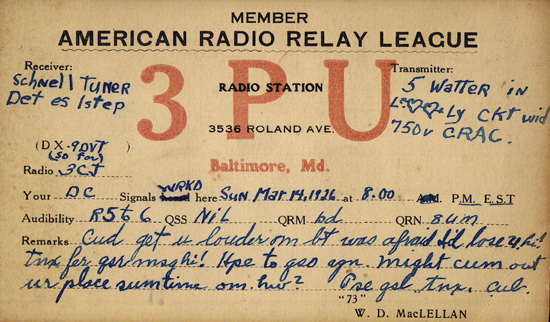 MEMBER
AMERICAN RADIO RELAY LEAGUE
Receiver:
Schnell Tuner
Det es 1step
3PU
RADIO STATION
3536 ROLAND AVE.
Baltimore, Md.
Transmitter:
5 Watter in
Ly Ckt wid
750v CRAC.
(DX-9DVT)
(so far)
Radio 3CJ
Your DC Signals WRKD here Sun Mar 14, 1926 at 8.00 P.M. E.S.T
Audibility R5 to 6 QSS Nil QRM bd QRN sum
Remarks Cud get u louder om bt was afraid I'd lose u hi!
tnx fer qsr msg hi! Hpe to qso agn. might cum out
ur place sumtime om. hw? Pse qsl tnx. Cul.
"73"
W. D. MacLELLAN